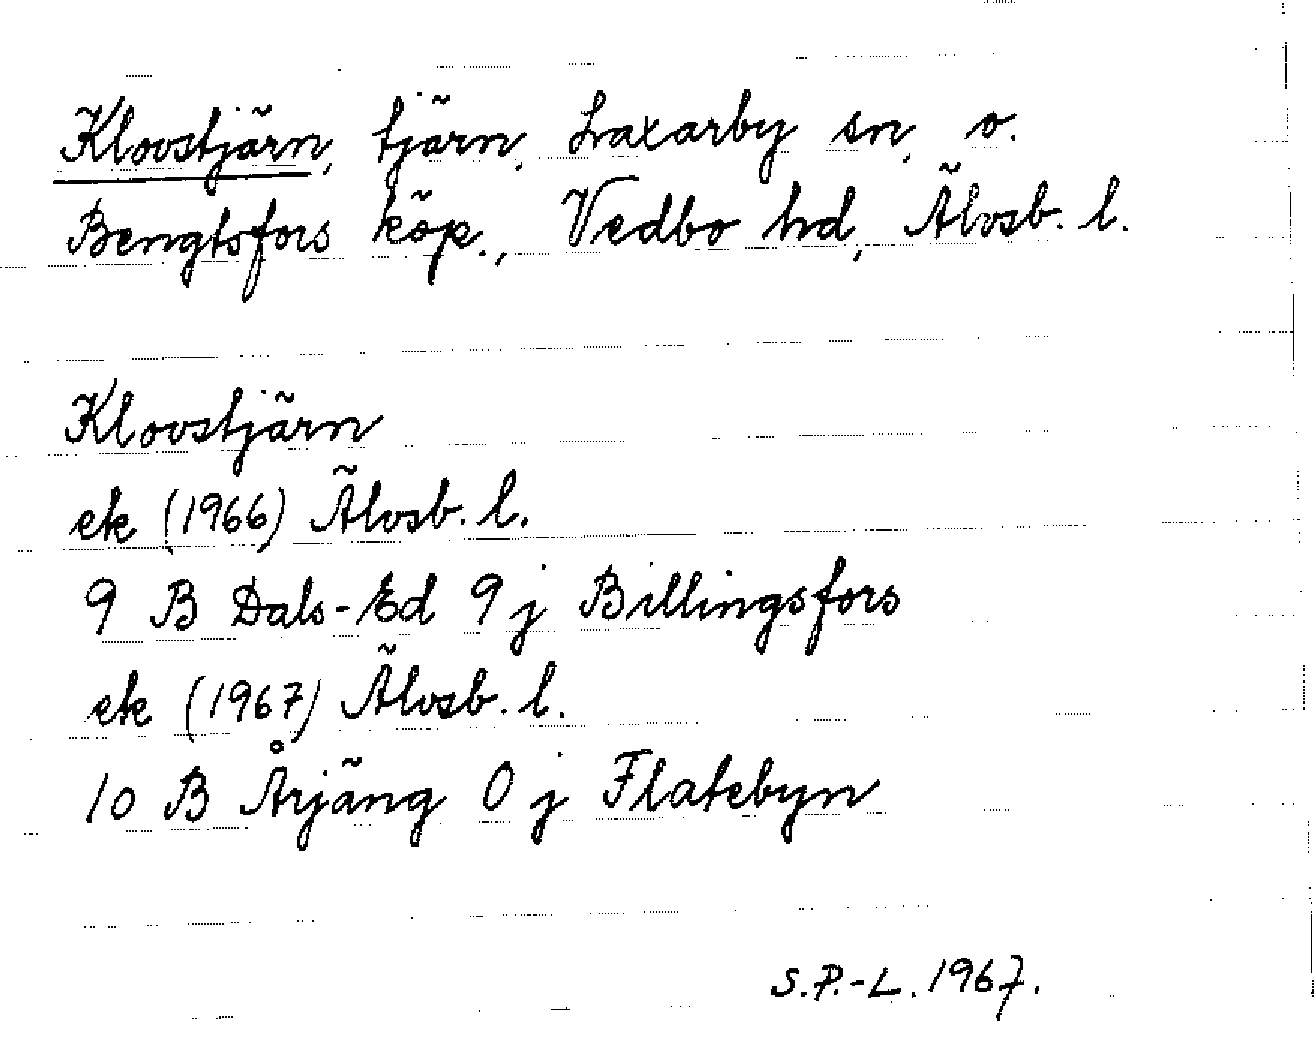 Klovstjärn, tjärn, Laxarby sn, o.
Bengtsfors köp., Vedbo hd, Älvsb. l.
Klovstjärn
ek (1966) Älvsb. l.
9 B Dals-Ed 9 j Billingsfors
ek (1967) Älvsb. l.
10 B Årjäng 0 j Flatebyn
S.P.-L. 1967.